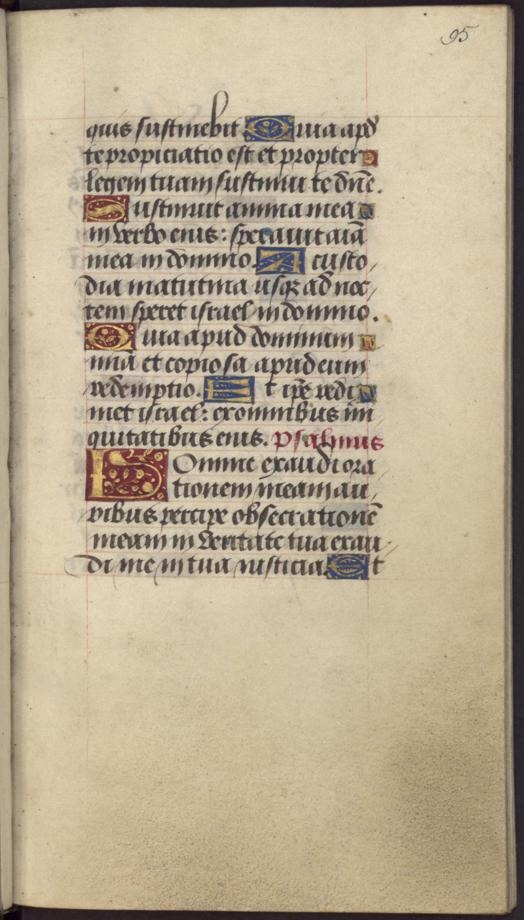 95
quis sustinebit. Quia apd̄
te propiciatio est et propter
legem tuam sustinui te dn̄e.
Sustinuit anima mea
in verbo eius: speravit aīā
mea in domino. A custo
dia matutina usq; ad noc
tem speret israel in domino.
Quia apud dominum
mīā et copiosa apud eum
redemptio. Et ip̄e redi
met israel: ex omnibus ini
quitatibus eius. psalmus
Domine exaudi ora
tionem meam au
ribus percipe obsecrationē
meam in veritate tua exau
di me in tua iusticia. Et